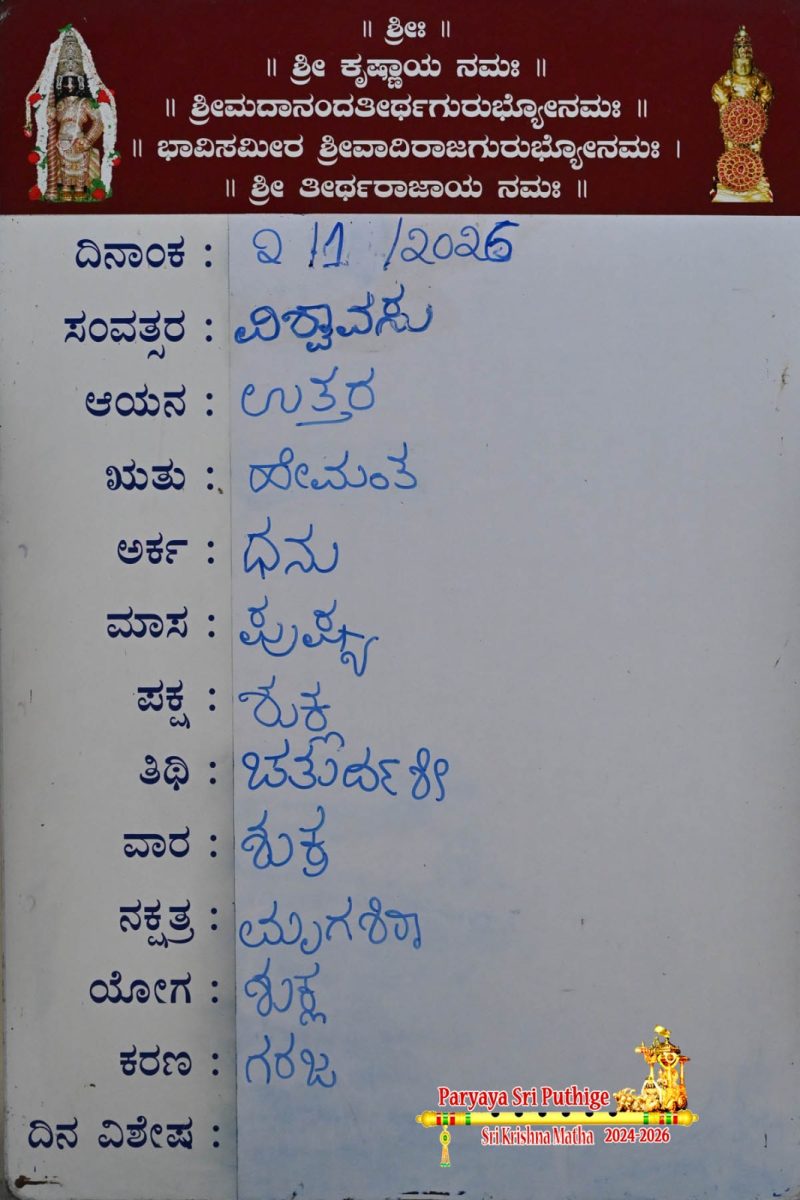 ॥ ಶ್ರೀಃ ॥
॥ ಶ್ರೀ ಕೃಷ್ಣಾಯ ನಮಃ ॥
॥ ಶ್ರೀಮದಾನಂದತೀರ್ಥಗುರುಭ್ಯೋನಮಃ ॥
॥ ಭಾವಿಸಮೀರ ಶ್ರೀವಾದಿರಾಜಗುರುಭ್ಯೋನಮಃ ।
॥ ಶ್ರೀ ತೀರ್ಥರಾಜಾಯ ನಮಃ ॥
ದಿನಾಂಕ : ೨ /1 /೨೦೨6
ಸಂವತ್ಸರ : ವಿಶ್ವಾವಸು
ಆಯನ : ಉತ್ತರ
ಋತು : ಹೇಮಂತ
ಅರ್ಕ : ಧನು
ಮಾಸ : ಪುಷ್ಯ
ಪಕ್ಷ : ಶುಕ್ಲ
ತಿಥಿ : ಚತುರ್ದಶೀ
ವಾರ : ಶುಕ್ರ
ನಕ್ಷತ್ರ : ಮೃಗಶಿರಾ
ಯೋಗ : ಶುಕ್ಲ
ಕರಣ : ಗರಜ
ದಿನ ವಿಶೇಷ :
Paryaya Sri Puthige
Sri Krishna Matha 2024-2026